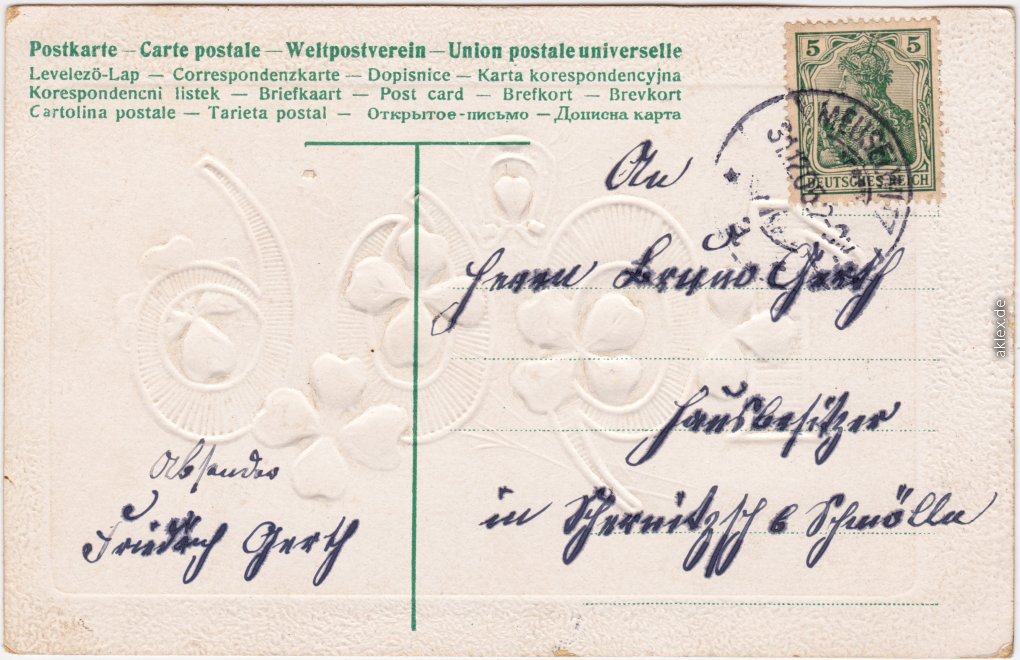 Postkarte — Carte postale — Weltpostverein — Union postale universelle
Levelező-Lap — Correspondenzkarte — Dopisnice — Karta korespondencyjna
Korespondencni listek — Briefkaart — Post card — Brefkort — Brevkort
Cartolina postale — Tarieta postal — Открытое-письмо — Дописна карта
5 5
DEUTSCHES REICH
An
Herrn Bruno Gerth
Hausbesitzer
in Schernitzsch b Schmölln
Absender
Friedrich Gerth
aklex.de